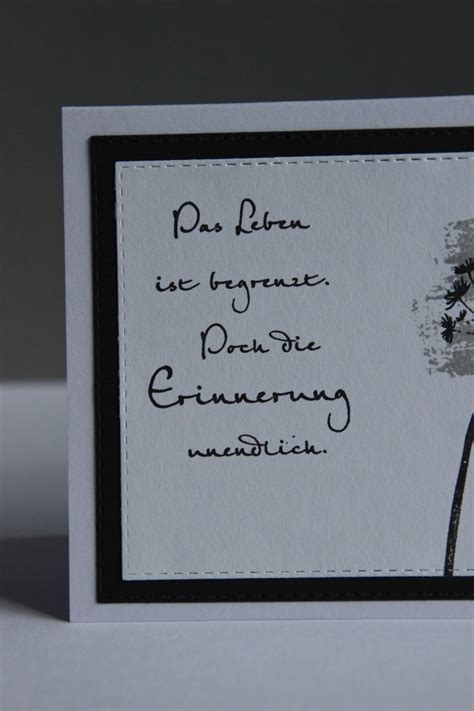 Das Leben
ist begrenzt.
Doch die
Erinnerung
unendlich.